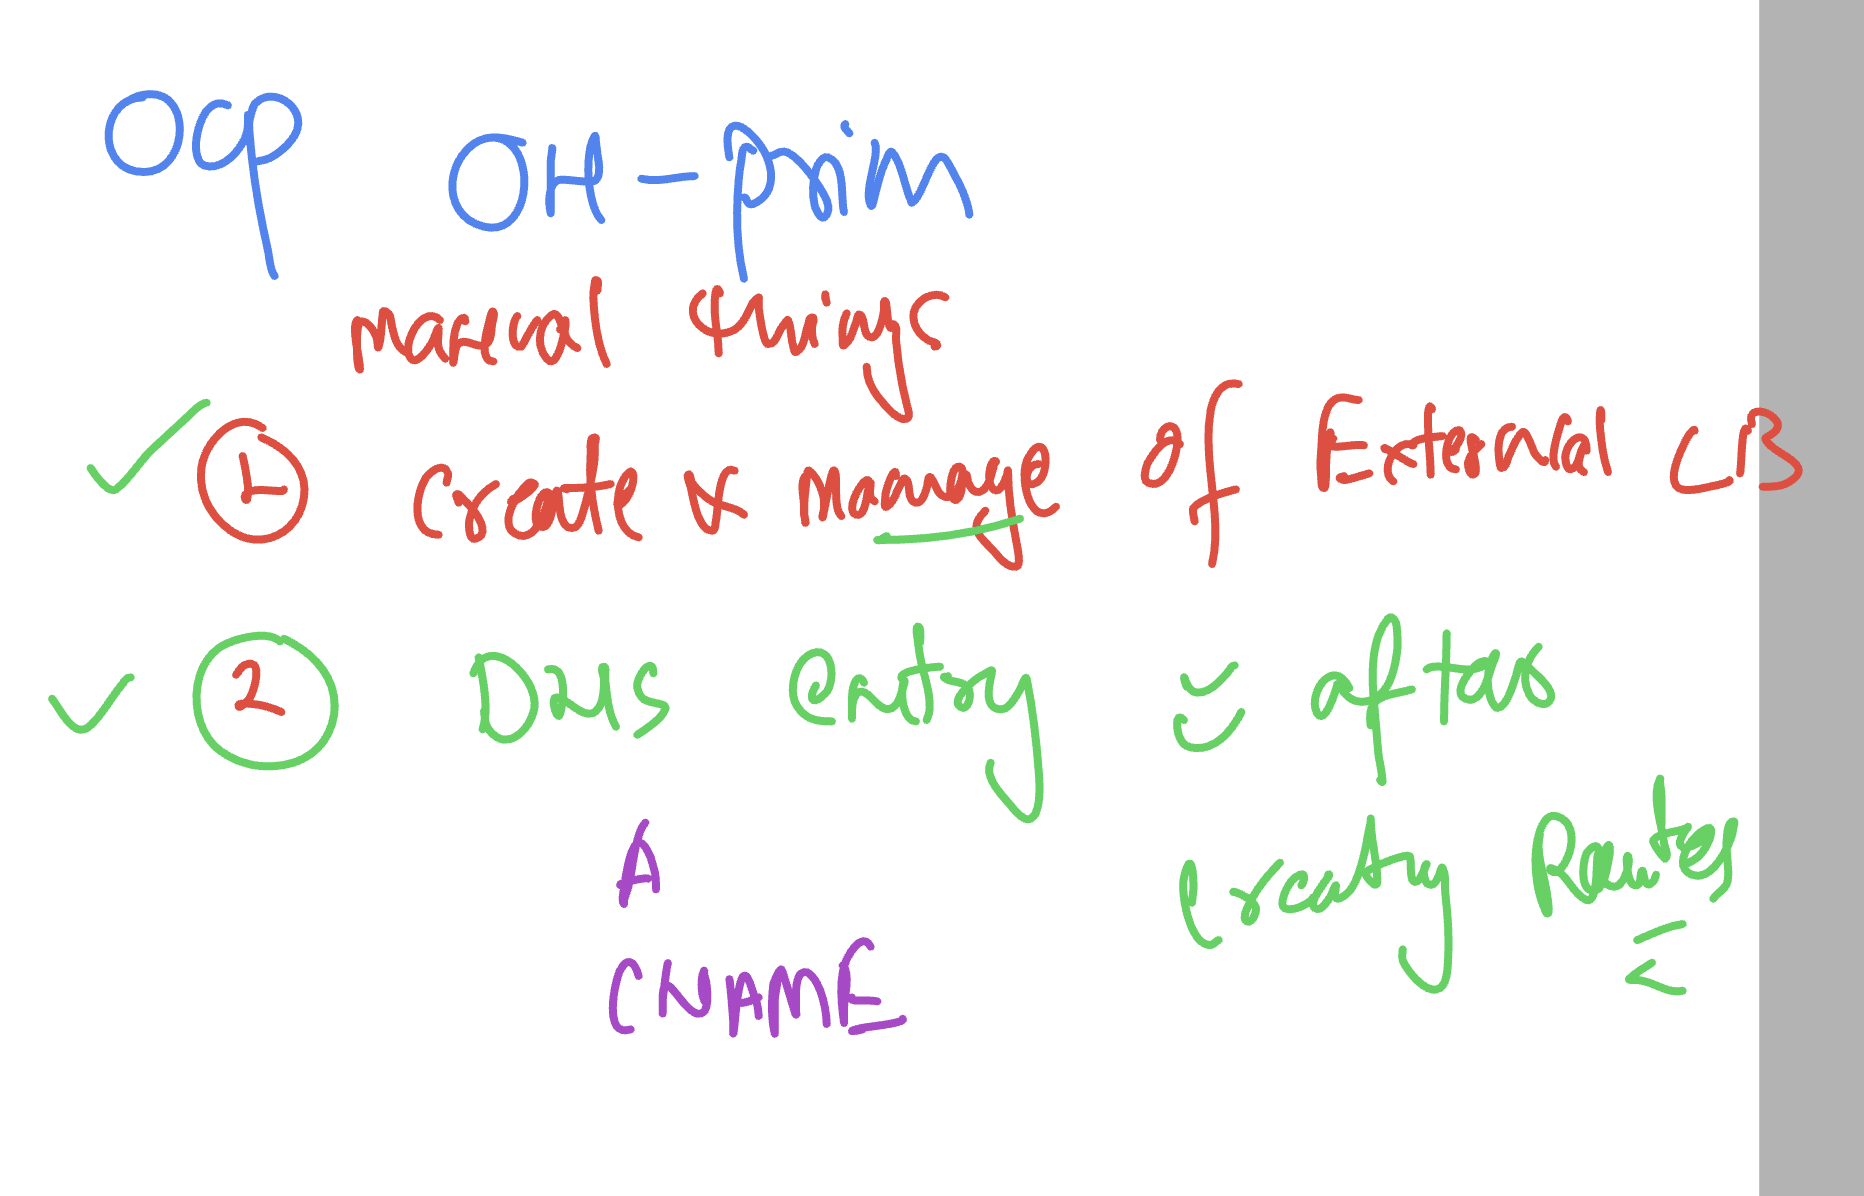 OCP OH-prim
manual things
1 create & manage of External LB
2 DNS entry :- after
creating Routes
A
CNAME